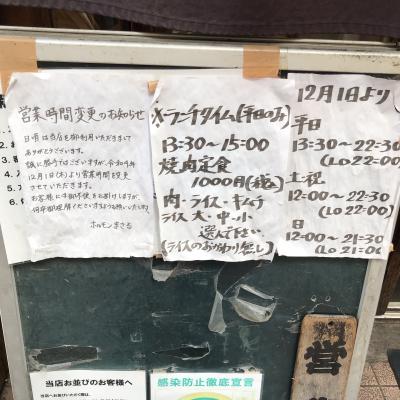 営業時間変更のおしらせ
日頃は当店を御利用いただきまして
ありがとうございます。
誠に勝手ではございますが、令和4年
12月1日(木)より営業時間を変更
させていただきます。
お客様に
何卒御理解くださいますようお願いいたします。
ホルモンまさる
※ランチタイム(平日のみ)
13:30〜15:00
焼肉定食
1000円(税込)
肉・ライス・キムチ
ライス大・中・小
選んで下さい
(ライスのおかわり無し)
12月1日より
平日
13:30〜22:30
(LO22:00)
土・祝
12:00〜22:30
(LO22:00)
日
12:00〜21:30
(LO21:00)
営
当店お並びのお客様へ
感染防止徹底宣言